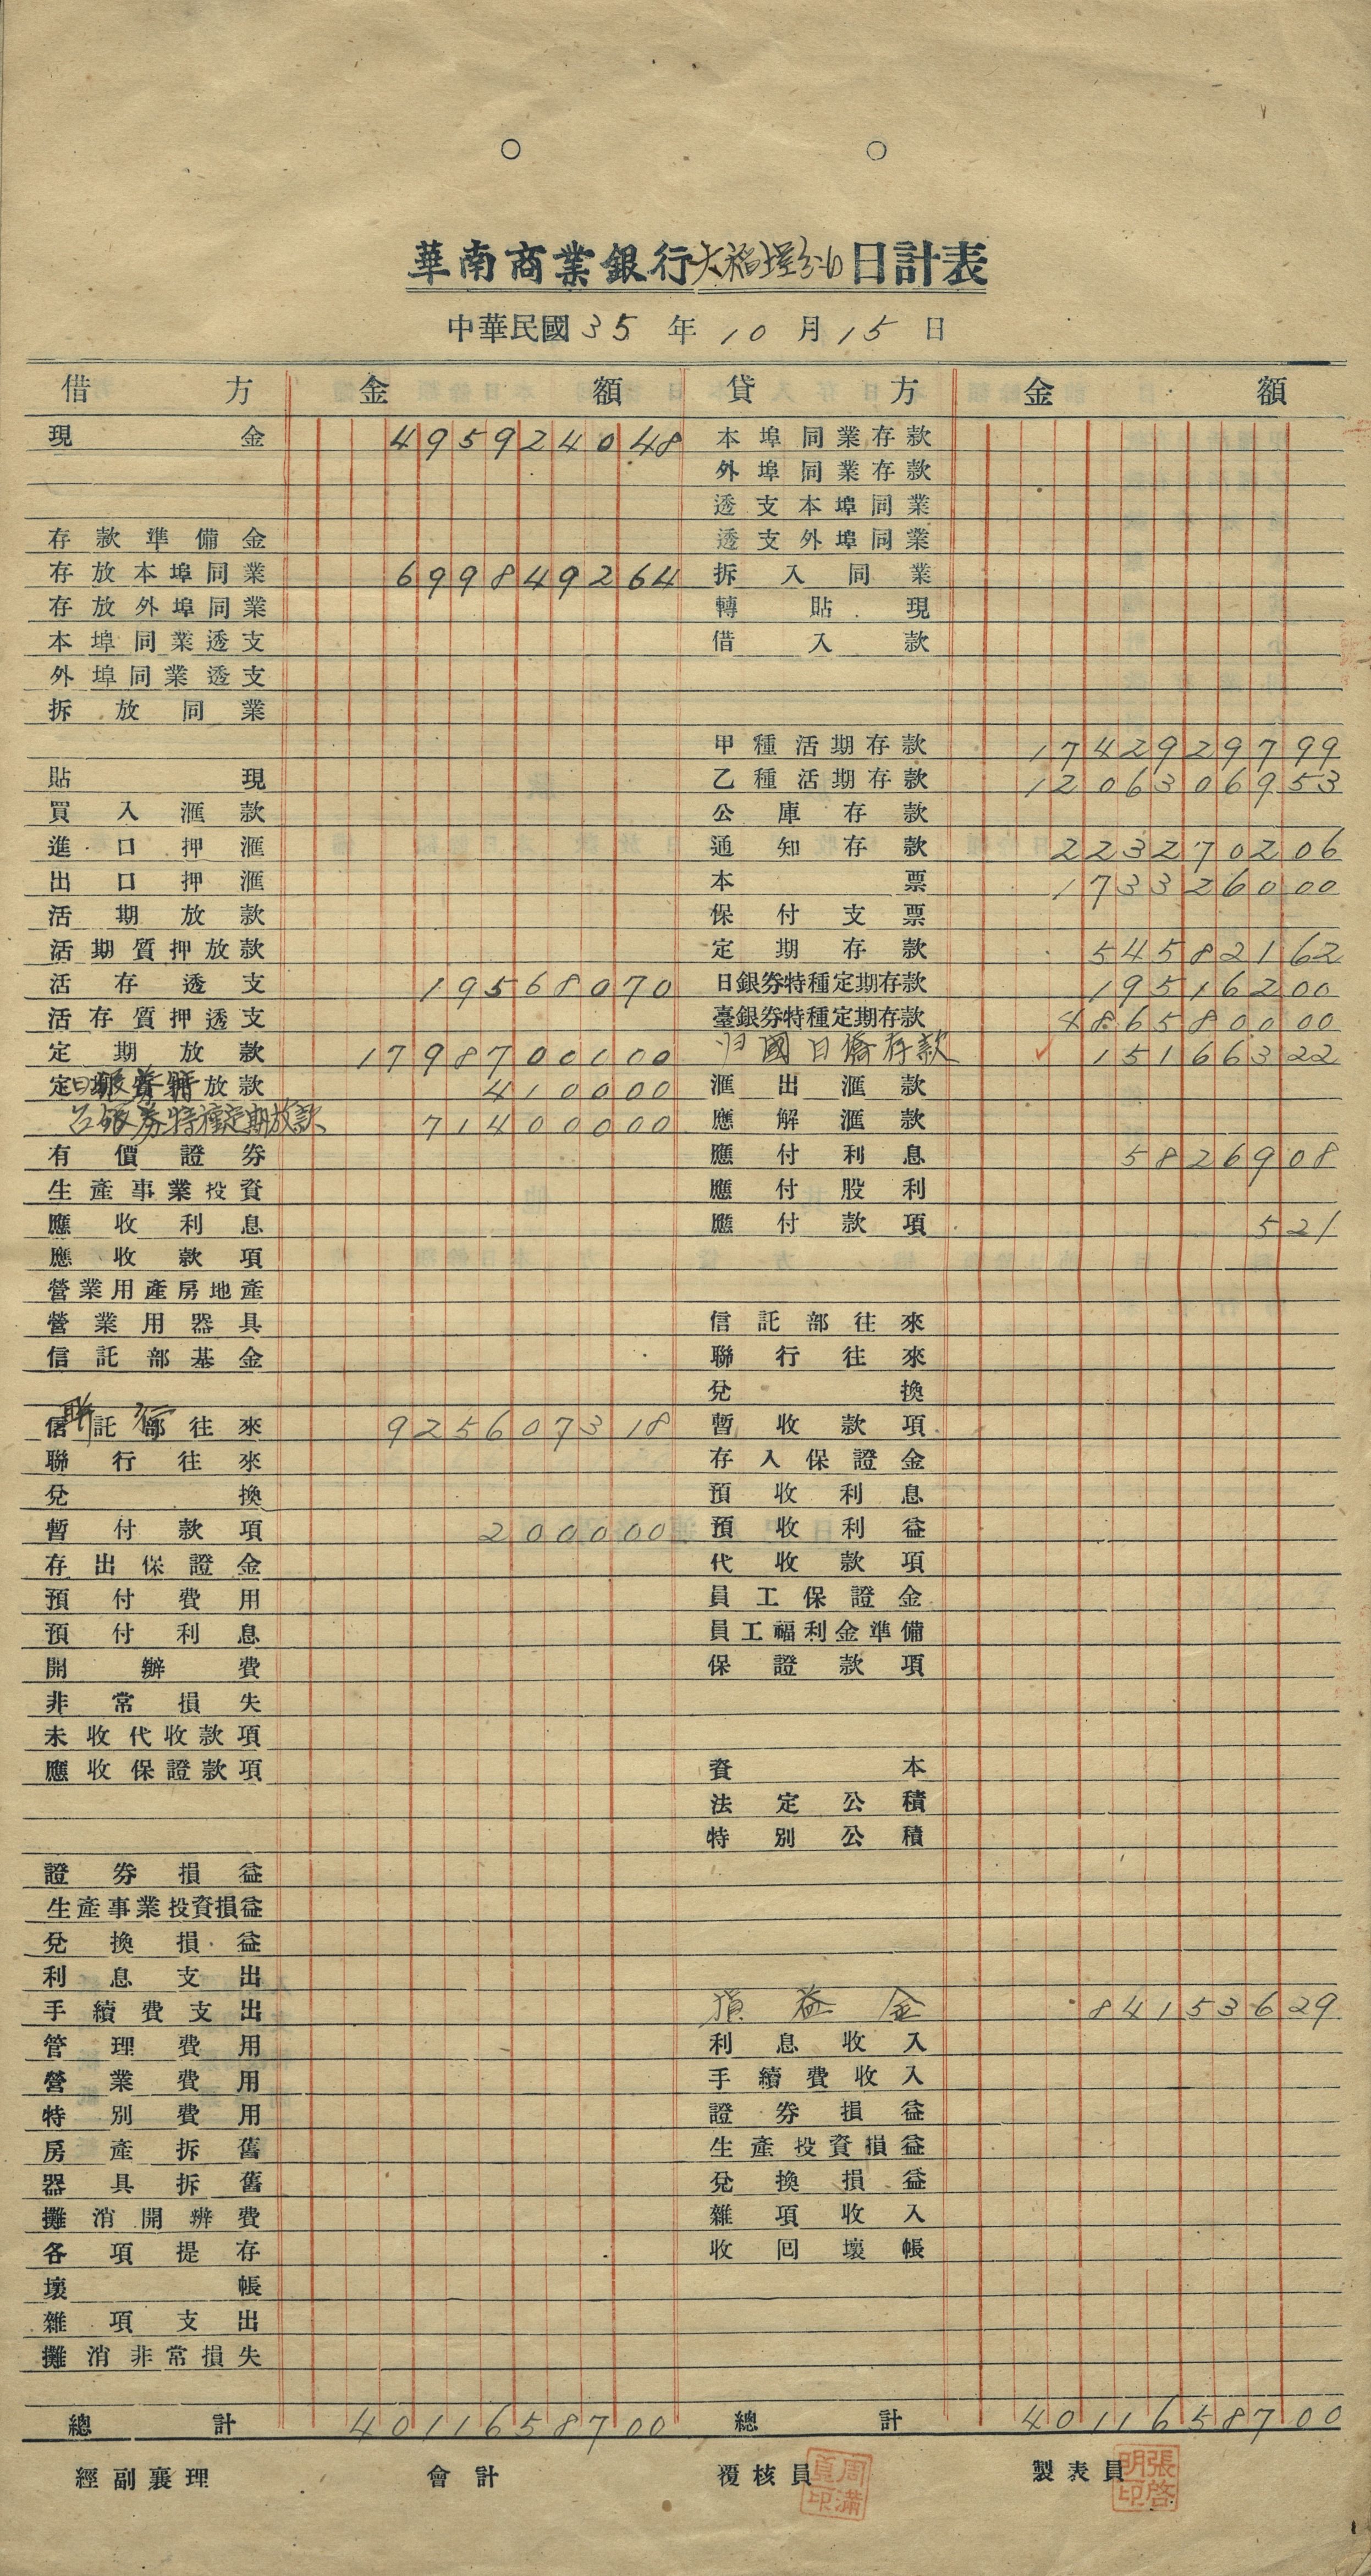 華南商業銀行大稻埕分行日計表
中華民國35年10月15日
借方 金額 貸方 金額
現金 495924048 本埠同業存款
外埠同業存款
透支本埠同業
存款準備金 透支外埠同業
存放本埠同業 699849264 拆入同業
存放外埠同業 轉貼現
本埠同業透支 借入款
外埠同業透支
拆放同業
甲種活期存款 1742929799
貼現 乙種活期存款 1206306953
買入滙款 公庫存款
進口押滙 通知存款 223270206
出口押滙 本票 173326000
活期放款 保付支票
活期質押放款 定期存款 54582162
活存透支 19568070 日銀券特種定期存款 19516200
活存質押透支 臺銀券特種定期存款 486580000
定期放款 1798700000 归國日僑存款 15166322
定期質押放款 日銀券特 410000 滙出滙款
台銀券特種定期放款 71400000 應解滙款
有價證券 應付利息 5826908
生產事業投資 應付股利
應收利息 應付款項 521
應收款項
營業用產房地產
營業用器具 信託部往來
信託部基金 聯行往來
兌換
信託部往來 聯行 925607318 暫收款項
聯行往來 存入保證金
兌換 預收利息
暫付款項 200000 預收利益
存出保證金 代收款項
預付費用 員工保證金
預付利息 員工福利金準備
開辦費 保證款項
非常損失
未收代收款項
應收保證款項 資本
法定公積
特別公積
證券損益
生產事業投資損益
兌換損益
利息支出
手續費支出 損益金 84153629
管理費用 利息收入
營業費用 手續費收入
特別費用 證券損益
房產拆舊 生產投資損益
器具拆舊 兌換損益
攤消開辦費 雜項收入
各項提存 收回壞帳
壞帳
雜項支出
攤消非常損失
總計 4011658700 總計 4011658700
經副襄理 會計 覆核員 製表員 張啓明印